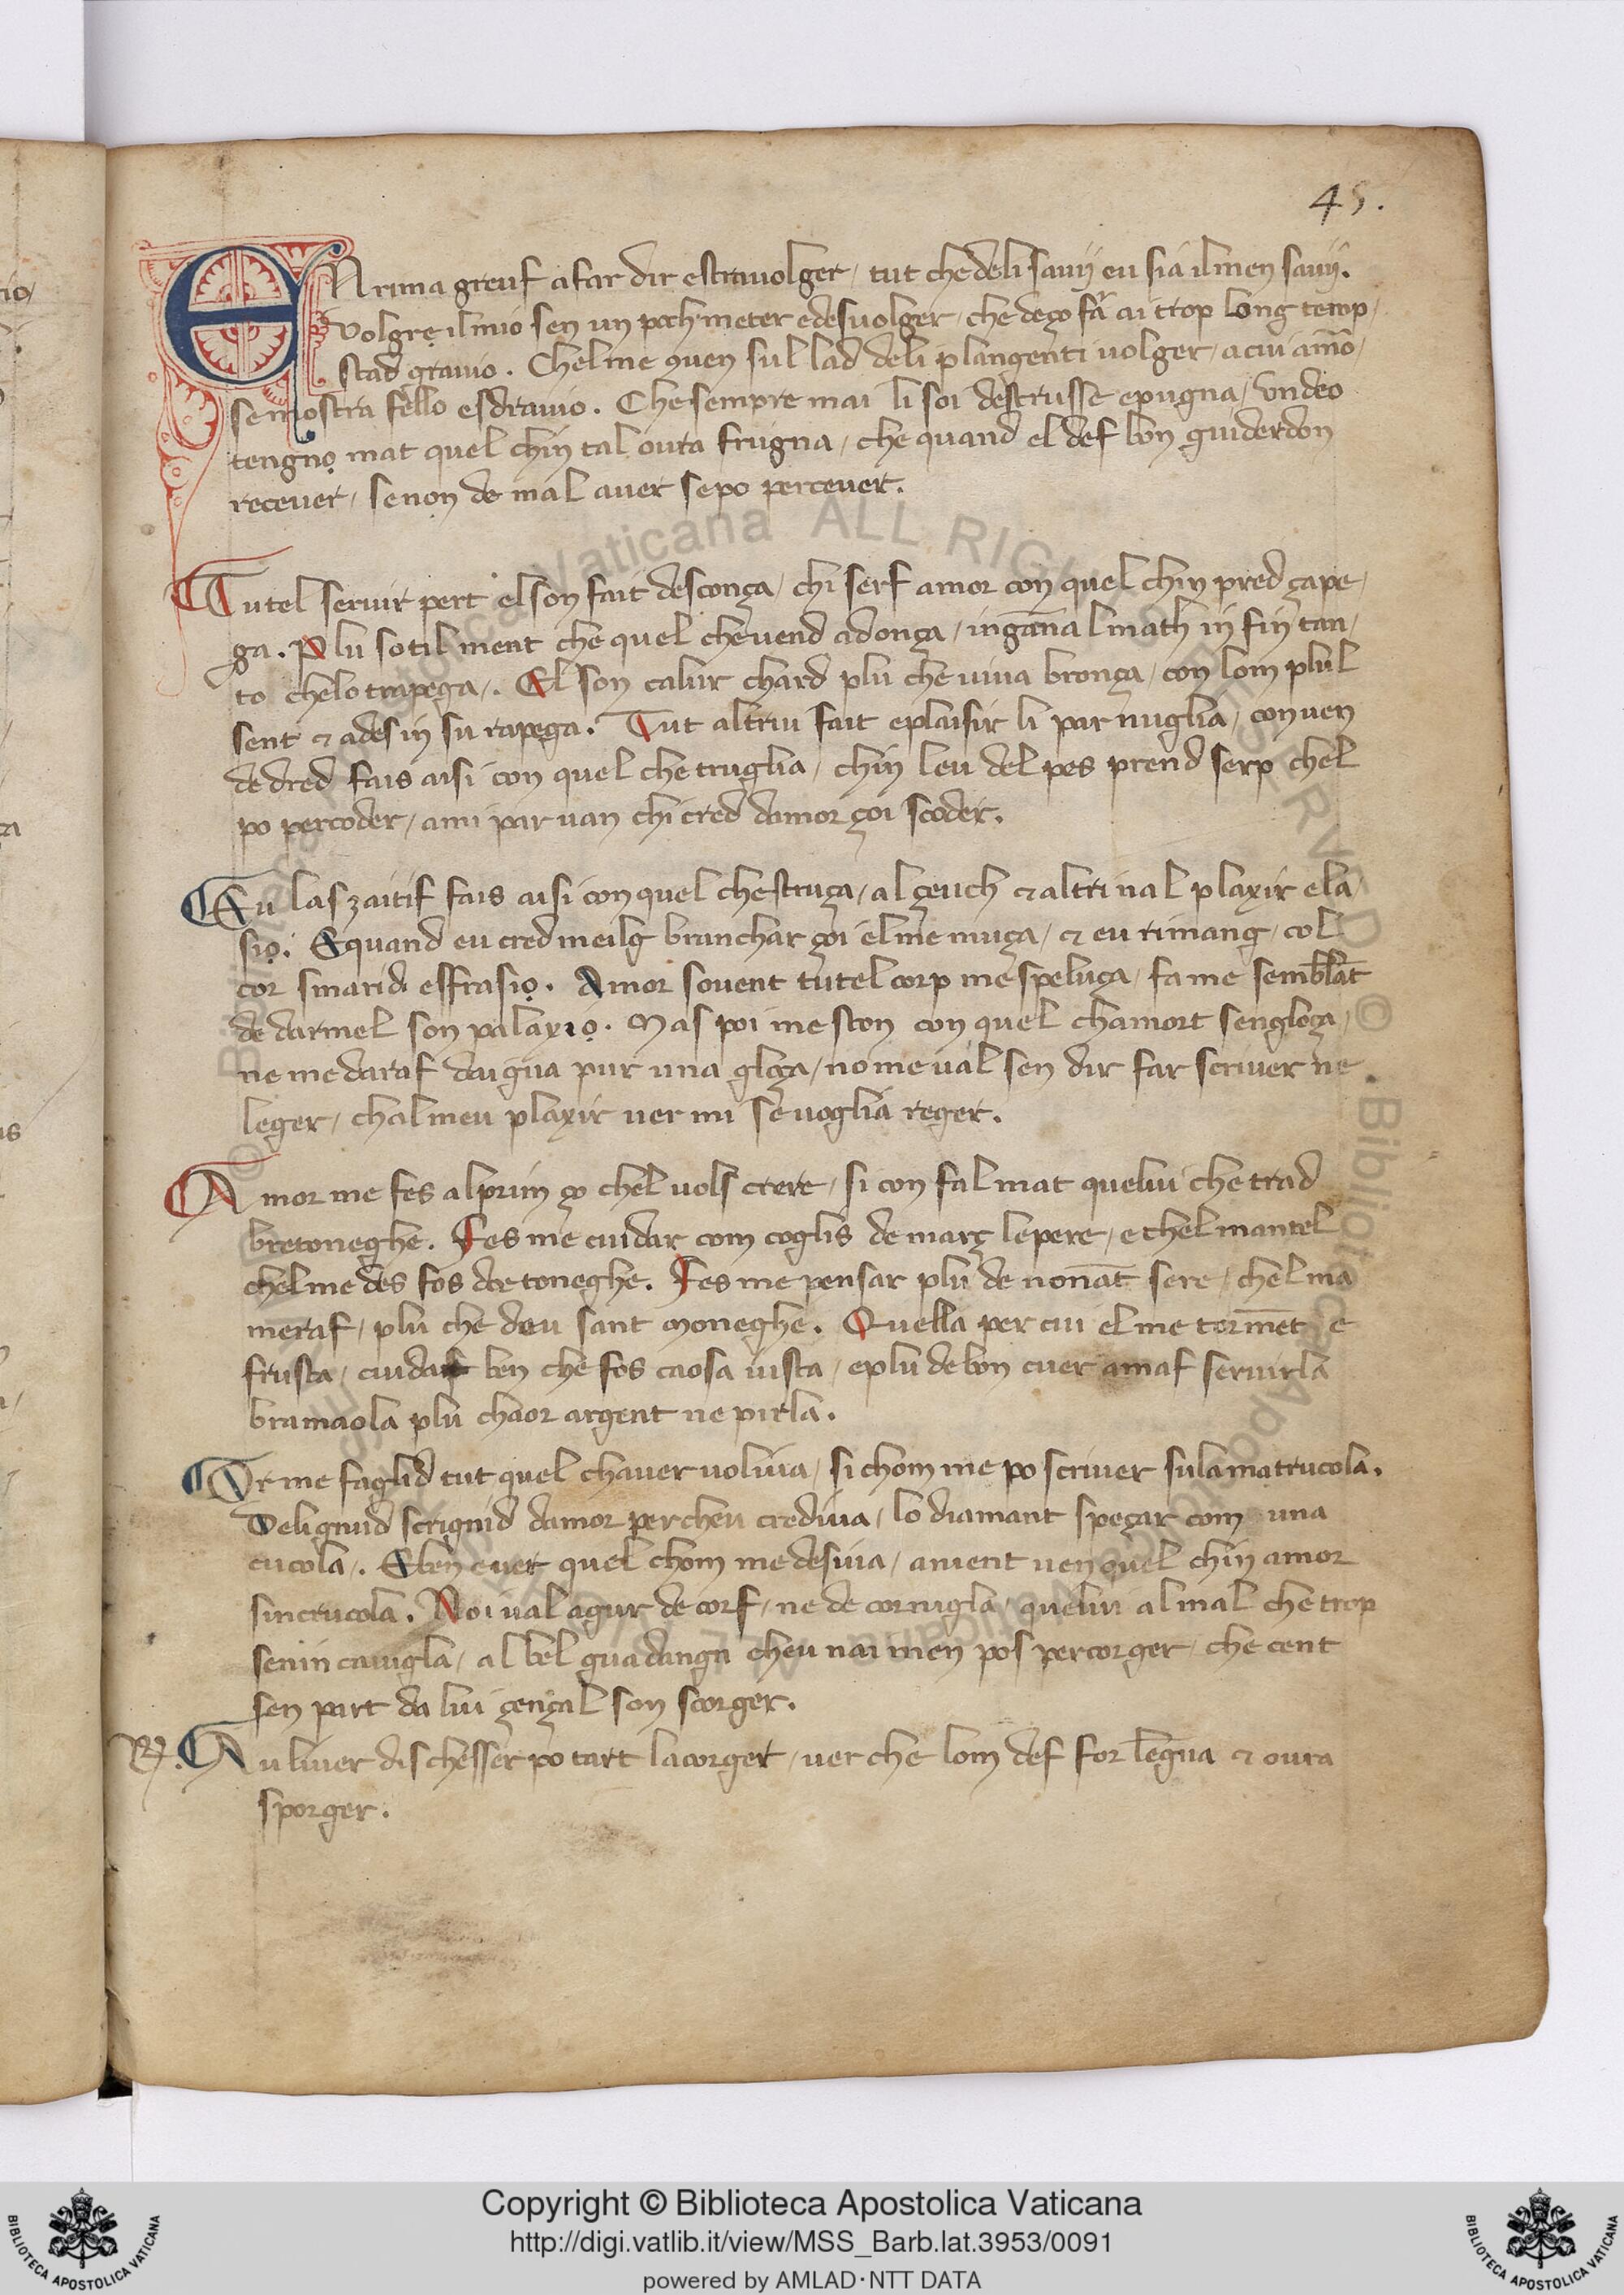 45.
ENrima greuf a far dir estrauolger / tut che deli sauij eu sia il men sauij.
Volgrẹ il mio sen un poch meter e desuolger / che deço far ai trop long temp /
stad grauio. Chel me 9uen sul lad deli plangenti uolger / a cui amo /
se mostra fello esdrauio. Che sempre mai li soi destrusse e pugna / Vndeo
tengnọ mat quel chin tal oura frugna / che quand el def bon guiderdon
receuer / se non de mal auer se po perceuer.
Tutel seruir pert el son fait desconça / chi serf amor con quel chin pred çape /
ga. Plu sotil ment che quel che uend adonça / inganal math in fin tan /
to chelo trapega /. El son calur chard plu che uiua bronça / con lom plul
sent & ades in su rapega. Tut altrui fait e plaisir li par nuglia / conuen
de dred fais aisi con quel che truglia / chin leu del pes prend serp chel
po percoder / a mi par uan chi cred damor çoi scoder.
Eu las zaitif fais aisi con quel che struça / al çeuch & altri nal plaxir e la /
siọ. E quand eu cred meilg branchar çoi el me muça / & eu rimang / col
cor smarid esfrasiọ. Amor souent tutel corp me speluça / fa me semblāt
de darmel son palaxiọ. Mas poi me ston con quel chamort sengloça /
ne me daraf daigua pur una gloça / no me ual sen dir far scriuer ne
leger / chal meu plaxir uer mi se uoglia reger.
Amor me fes al prim ço chel uols crere / si con fal mat quelui che trad
bretoneghe. Fes me cuidar com coglis de març le pere / e chel mantel
chel me des fos de toneghe. Fes me pensar plu de nonāt sere / chel ma
meraf / plu che deu sant moneghe. Quella per cui el me tormēt e
frusta / cuidaf ben che fos caosa iusta / e plu de bon cuer amaf seruirla
bramaola plu chaor argent ne pirla.
Or me faglid tut quel chauer uoliuia / si chom me po scriuer sula matrucola.
Deliguid scrignid damor per cheu crediua / lo diamant speçar com una
cucola /. E ben e uer quel chom me desuia / auient uen quel chin amor
sincrucola. Noi ual agur de corf / ne de cornigla / quelui al mal che trop
sen in cauigla / al bel guadangn cheu nai men pos percorger / che cent
sen part da lui çençal son scorger.
R). Au liuer dischesser po tart lacorger / uer che lom def for lengua & oura
sporger.
Copyright © Biblioteca Apostolica Vaticana
http://digi.vatlib.it/view/MSS_Barb.lat.3953/0091
powered by AMLAD·NTT DATA
BIBLIOTECA APOSTOLICA VATICANA
BIBLIOTECA APOSTOLICA VATICANA